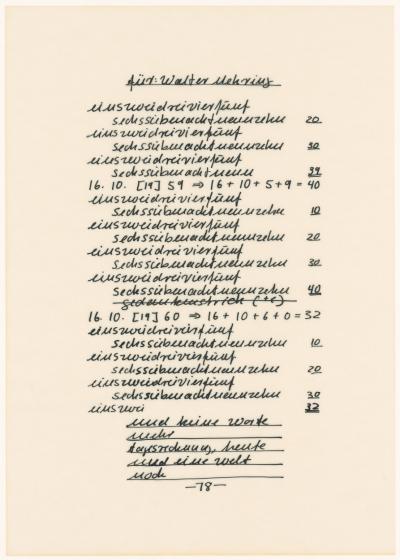 für: Walter Mehring
einszweidreivierfünf
sechssiebenachtneunzehn 20
einszweidreivierfünf
sechssiebenachtneunzehn 30
einszweidreivierfünf
sechssiebenachtneun 39
16. 10. [19] 59 ⇒ 16 + 10 + 5 + 9 = 40
einszweidreivierfünf
sechssiebenachtneunzehn 10
einszweidreivierfünf
sechssiebenachtneunzehn 20
einszweidreivierfünf
sechssiebenachtneunzehn 30
einszweidreivierfünf
sechssiebenachtneunzehn 40
gedankenstrich
16. 10. [19] 60 ⇒ 16 + 10 + 6 + 0 = 32
einszweidreivierfünf
sechssiebenachtneunzehn 10
einszweidreivierfünf
sechssiebenachtneunzehn 20
einszweidreivierfünf
sechssiebenachtneunzehn 30
einszwei 32
und keine Worte
mehr
tagsrechnung, heute
und eine welt
noch
—78—